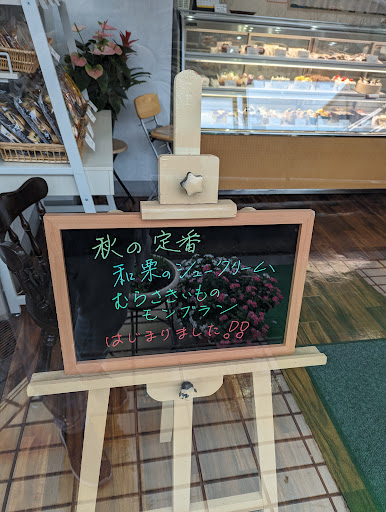 秋の定番
和栗のシュークリーム、
むらさきいもの
モンブラン
はじまりました!!